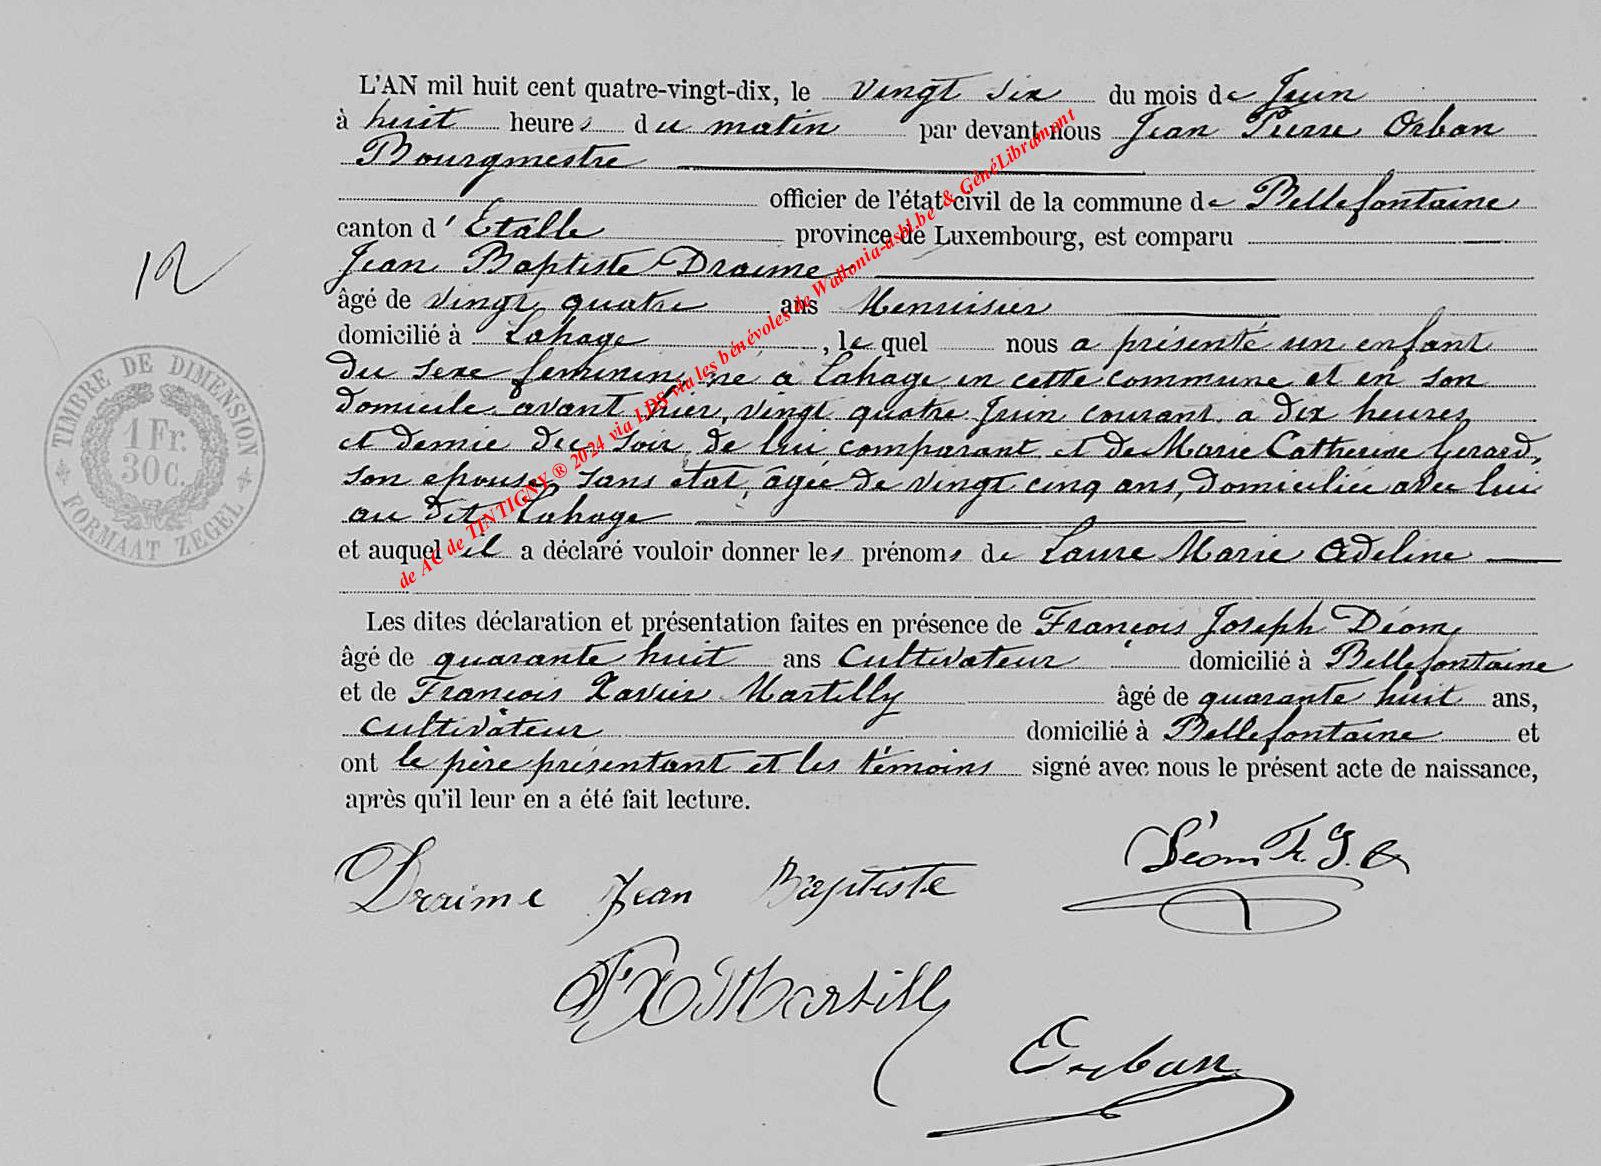 L'AN mil huit cent quatre-vingt-dix, le vingt six du mois de Juin
à huit heures du matin par devant nous Jean Pierre Orban
Bourgmestre
officier de l'état civil de la commune de Bellefontaine
canton d' Etalle province de Luxembourg, est comparu
12
Jean Baptiste Draime
âgé de vingt quatre ans Menuisier
domicilié à Lahage, le quel nous a présenté un enfant
du sexe feminin, né à Lahage en cette commune et en son
domicile avant hier, vingt quatre Juin courant à dix heures
et demie du soir, de lui comparant et de Marie Catherine Gerard,
son épouse, sans état, âgée de vingt cinq ans, domiciliée avec lui
au dit Lahage
et auquel il a déclaré vouloir donner les prénoms de Laure Marie Adeline
TIMBRE DE DIMENSION
1 Fr.
30 C.
FORMAAT ZEGEL
Les dites déclaration et présentation faites en présence de François Joseph Déom
âgé de quarante huit ans cultivateur domicilié à Bellefontaine
et de François Xavier Martilly âgé de quarante huit ans,
cultivateur domicilié à Bellefontaine et
ont le père présentant et les témoins signé avec nous le présent acte de naissance,
après qu'il leur en a été fait lecture.
Draime Jean Baptiste
Déom F. J.
F X Martilly
Orban
de AC de TINTIGNY ® 2024 via LDS via les bénévoles de Wallonia-asbl.be & GénéLibramont